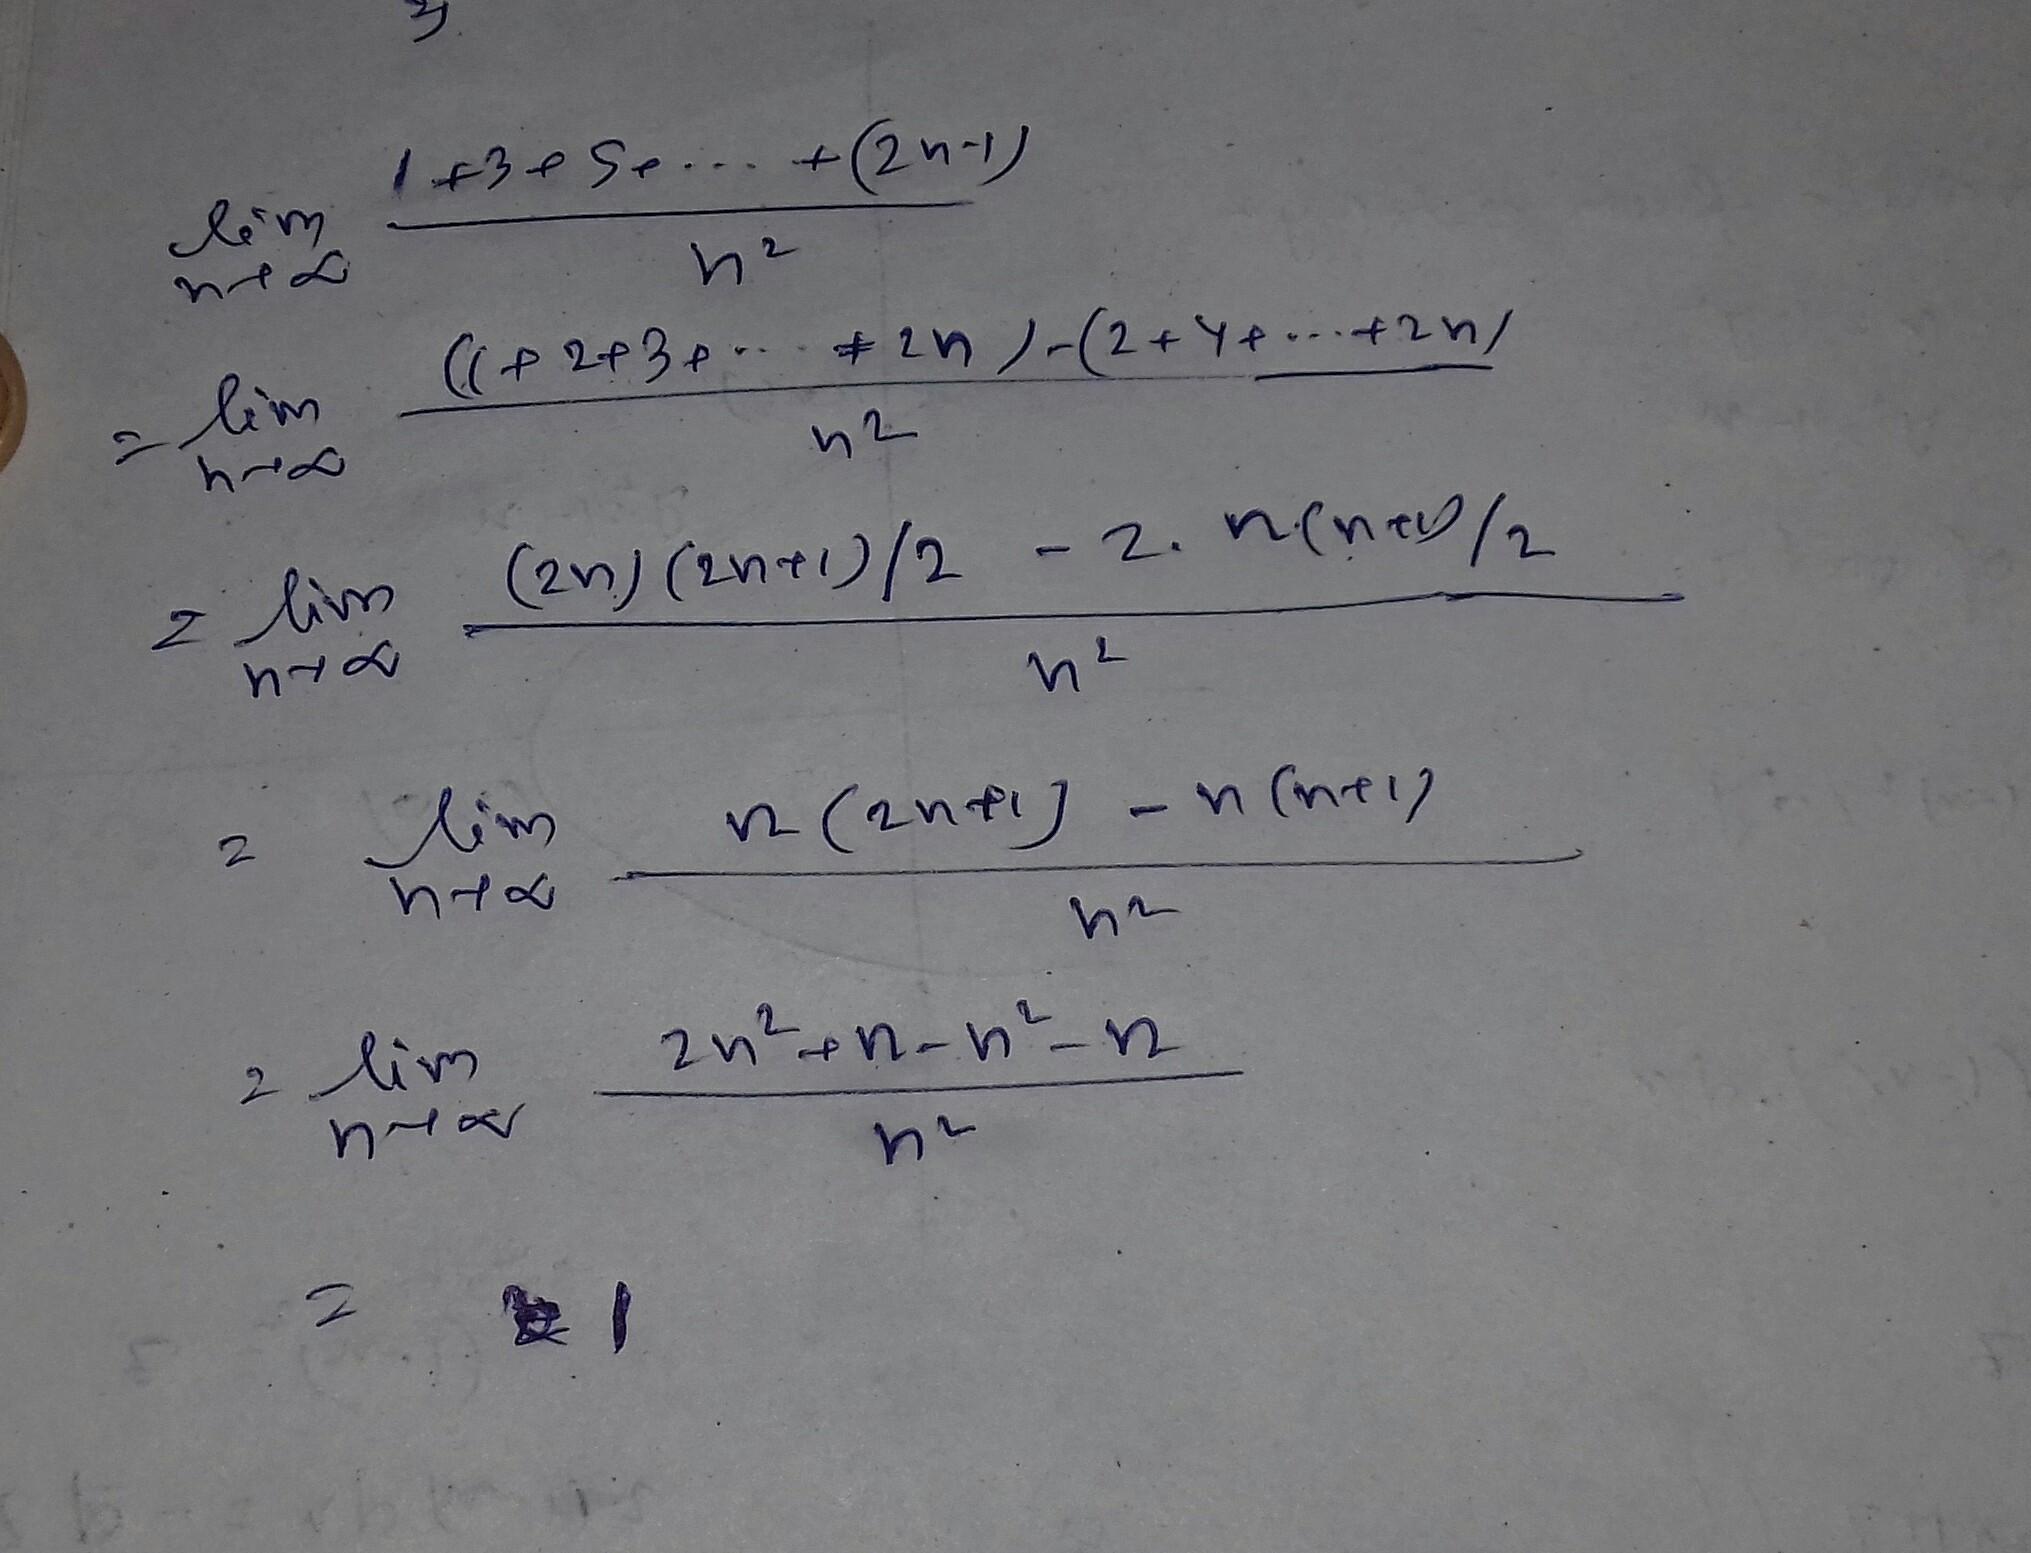 lim n→∞ (1+3+5+....+(2n-1))/n²
= lim n→∞ ((1+2+3+....+2n)-(2+4+....+2n))/n²
= lim n→∞ ((2n)(2n+1)/2 - 2.n(n+1)/2)/n²
= lim n→∞ (n(2n+1)-n(n+1))/n²
= lim n→∞ (2n²+n-n²-n)/n²
= 1